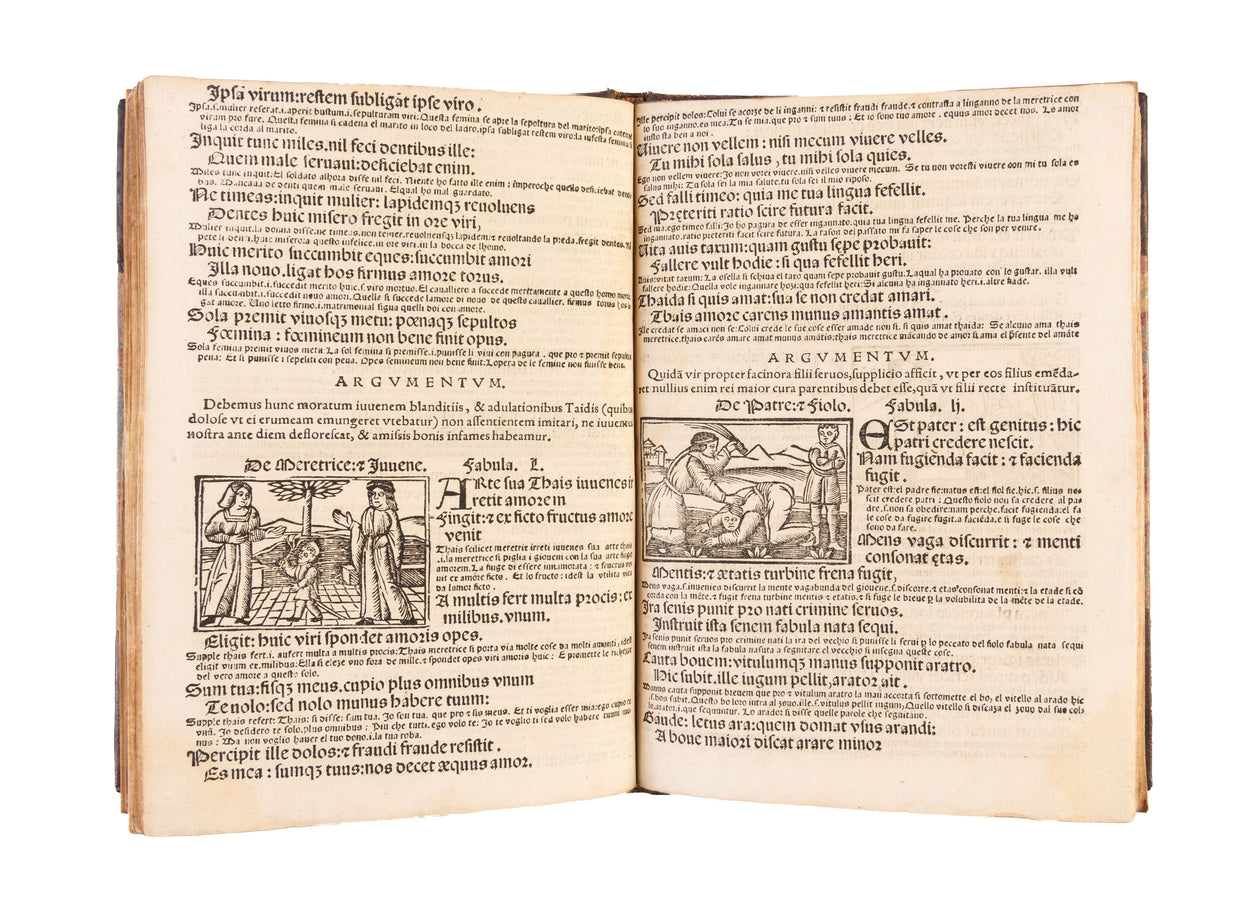 Ipsa virum:restem subligāt ipse viro.
Ipsa.s.mulier reserat.i.aperit bustum.i.sepulturam viri: Questa femina se apre la sepoltura del marito:ipsa catenat
virum pro fure. Questa femina si cadena el marito in loco del ladro.ipsa subligat restem viro:la
liga la corda al marito.
Inquit tunc miles.nil feci dentibus ille:
Quem male seruaui:deficiebat enim.
Miles tunc inquit:El soldato alhora disse nil feci. Niente ho fatto ille enim:
bas. Mancaua de denti quem male seruaui. Elqual ho mal guardato.
Ne timeas:inquit mulier: lapidemqȝ reuoluens
Dentes huic misero fregit in ore viri,
Mulier inquit.la donna disse.ne timeas.non temer.reuoluensqȝ lapidem:⁊ reuoltando la preda.fregit dentes.
pete li denti.huic misero:a questo infelice.in ore viri.in la bocca de lhomo.
Huic merito succumbit eques:succumbit amori
Illa nouo.ligat hos firmus amore torus.
Eques succumbit.i.succedit merito huic.s.viro mortuo. El cavalliero a succede meretamente a questo homo morto
illa succumbit.i.succedit nouo amori. Quella si succede lamore di nouo de questo cauallier. firmus torus hos
gat amore. Uno letto firmo.i.matrimonial ligna quelli doi con amore.
Sola premit viuosqȝ metu: pœnaqȝ sepultos
Fœmina: fœmineum non bene finit opus.
Sola femina premit viuos metu. La sol femina si premisse.i.punisse li viui con pagura. que pro ⁊ premit sepultos
pena: Et si punisse i sepeliti con pena. Opes femineum non bene finit:Lopera de le femine non finisse bene.
ARGVMENTVM.
Debemus hunc moratum iuuenem blanditiis, & adulationibus Taidis (quibus
dolose vt ei erumeam emungeret vtebatur) non assentientem imitari, ne iuuenta
nostra ante diem deflorescat, & amissis bonis infames habeamur.
De Meretrice:⁊ Iuuene. Fabula. L.
ARte sua Thais iuuenes
retit amorem
Fingit:⁊ ex ficto fructus amore
venit
Thais scilicet meretrix irreti iuuenes sua arte
.i.la meretrice si piglia i gioueni con la sua arte fingit
amorem.La fuge di essere innamorata: ⁊ fructus
nit ex amore ficto. Et lo fructo: idest la vtilita vien
da lamor ficto.
A multis fert multa procis: ex
milibus.vnum.
Eligit: huic viri spondet amoris opes.
Supple thais fert.i. aufert multa a multis procis:Thais meretrice si porta via molte cose da molti amanti, idest
eligit virum ex.milibus:Ella si eleze vno fora de mille.⁊ spondet opes viri amoris huic: E promette le richeze
del vero amore a questo solo.
Sum tua:fisqȝ meus.cupio plus omnibus vnum
Te uolo:sed nolo munus habere tuum:
Supple thais refert: Thais: si disse: sum tua. Jo son tua. que pro ⁊ sis meus. Et ti voglia esser mia:ego cupio te
vnū. Jo desidero te solo.plus omnibus: Piu che tutti.ego volo te: Jo te voglio ti sed volo habere tuum
nus: Ma non voglio hauer el tuo dono.i.la tua roba.
Percipit ille dolos:⁊ fraudi fraude resistit.
Es mea: sumqȝ tuus:nos decet æquus amor.
Ille percipit dolos:Colui se acorze de li inganni: ⁊ resistit fraudi fraude.⁊ contrasta a linganno de la meretrice con
lo suo inganno.es mea:Tu se mia.que pro ⁊ sum tuus: Et io sono tuo amore. equus amor decet nos. Lo amor
iusto sta ben a noi.
Viuere non vellem: nisi mecum viuere velles.
Tu mihi sola salus, tu mihi sola quies.
Ego non vellem viuere:Jo non vorei viuere.nisi velles viuere mecum. Se tu non voresti viuere con mi tu sola es
salus mihi: Tu sola sei la mia salute.tu sola sei il mio riposo.
Sed falli timeo: quia me tua lingua fefellit.
Pręteriti ratio scire futura facit.
Sed ma.ego timeo falli:Jo ho pagura de esser ingannato.quia tua lingua fefellit me. Perche la tua lingua me ha
ingannato.ratio preteriti facit scire futura. La rason del passato mi fa saper le cose che son per venire.
Uita auis tarum:quam gustu sępe probauit:
Fallere vult hodie: si qua fefellit heri.
Auis:vitat tarum: La osella si schiua el taro quam sepe probauit gustu.Laqual ha prouato con lo gustar. illa vult
fallere hodie: Quella vole ingannare hozi:qua fefellit heri:Si alcuna ha ingannato heri.i.altre fiade.
Thaida si quis amat:sua se non credat amari.
Thais amore carens munus amantis amat.
Ille credat se amaci non se:Colui crede le sue cose esser amade non si. si quis amat thaida: Se alcuno ama thais
meretrice.thais carēs amare amat munus amātis:thais meretrice mācando de amor si ama el p̄sente del amāte
ARGVMENTVM.
Quidā vir propter facinora filii seruos,supplicio afficit, vt per eos filius emēda-
ret nullius enim rei maior cura parentibus debet esse,quā vt filii recte instituātur.
De Patre:⁊ Fiolo. Fabula. lj.
ESt pater: est genitus: hic
patri credere nescit.
Nam fugiēnda facit: ⁊ facienda
fugit.
Pater est:el padre fie:natus est:el fiol fie.hic.s. filius nes-
scit credere patri: Questo fiolo non sa credere al pa-
dre.i.non sa obedire:nam perche.facit fugienda:el fa
le cose da fugire fugit.a faciēda.e si fuge le cose che
sono da fare.
Mens vaga discurrit: ⁊ menti
consonat ętas.
Mentis:⁊ ætatis turbine frena fugit,
Mens vaga.s.inuenies discurrit la mente vagabunda del giouene.s.discorre.⁊ etas consonat menti:⁊ la etade si cō
corda con la mēte.⁊ fugit frena turbine mentis ⁊ etatis.⁊ si fuge le bieue p̄ la volubilita de la mēte de la etade.
Ira senis punit pro nati crimine seruos.
Instruit ista senem fabula nata sequi.
Ira senis punit seruos pro crimine nati la ira del vechio si punisse li serui p̄ lo peccato del fiolo fabula nata sequi
senem instruit ista la fabula nasuta a segnitare el vecchio si insegna queste cose.
Cauta bouem:vitulumqȝ manus supponit aratro.
Hic subit.ille iugum pellit,arator ait.
Manus cauta supponit bouem que pro ⁊ vitulum aratro la man accorta si sottomette el bo, el vitello al arado hic
.s.bou subit.Questa bo loro intra al zouo.ille.s.vitulus pellit iugum,Quello vitello si discaza el zouo dal suo colo
.arator.i. que sequuntur. Lo arador si disse quelle parole che seguitano.
Gaude: letus ara:quem domat vsus arandi:
A boue maiori discat arare minor